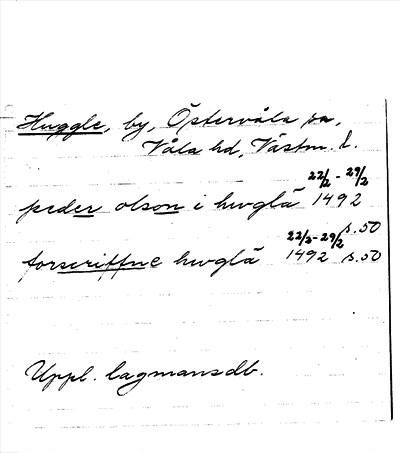 Huggle, by, Östervåla sn,
Våla hd, Västm. l.
peder olson i hwglä 22/2 - 29/2 1492
s. 50
forscriffne hwglä 22/2 - 29/2 1492 s. 50
Uppl. lagmansdb.